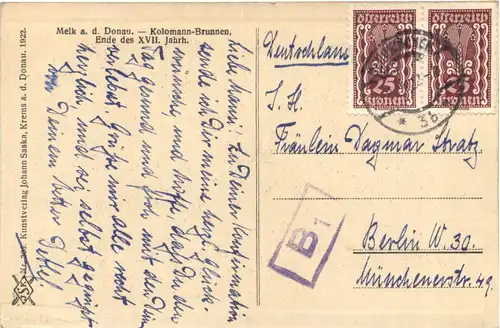 Melk a. d. Donau. — Kolomann-Brunnen,
Ende des XVII. Jahrh.
Kunstverlag Johann Saska, Krems a. d. Donau. 1922.
Lieb. Hansi! Zu Deiner Konfirmation
sende ich Dir meine herzl. Glück-
wünsche, und hoffe, daß Du den
Tag gesund und froh mit den Deinen
verlebst. Grüße mir alle recht
herzlich, und sei selbst gegrüßt
von Deinem
Deutschland
österreich
25
Kronen
österreich
25
Kronen
* 3b
S. H.
Fräulein Dagmar Stratz
B1
Berlin W. 30
Münchenerstr. 49.